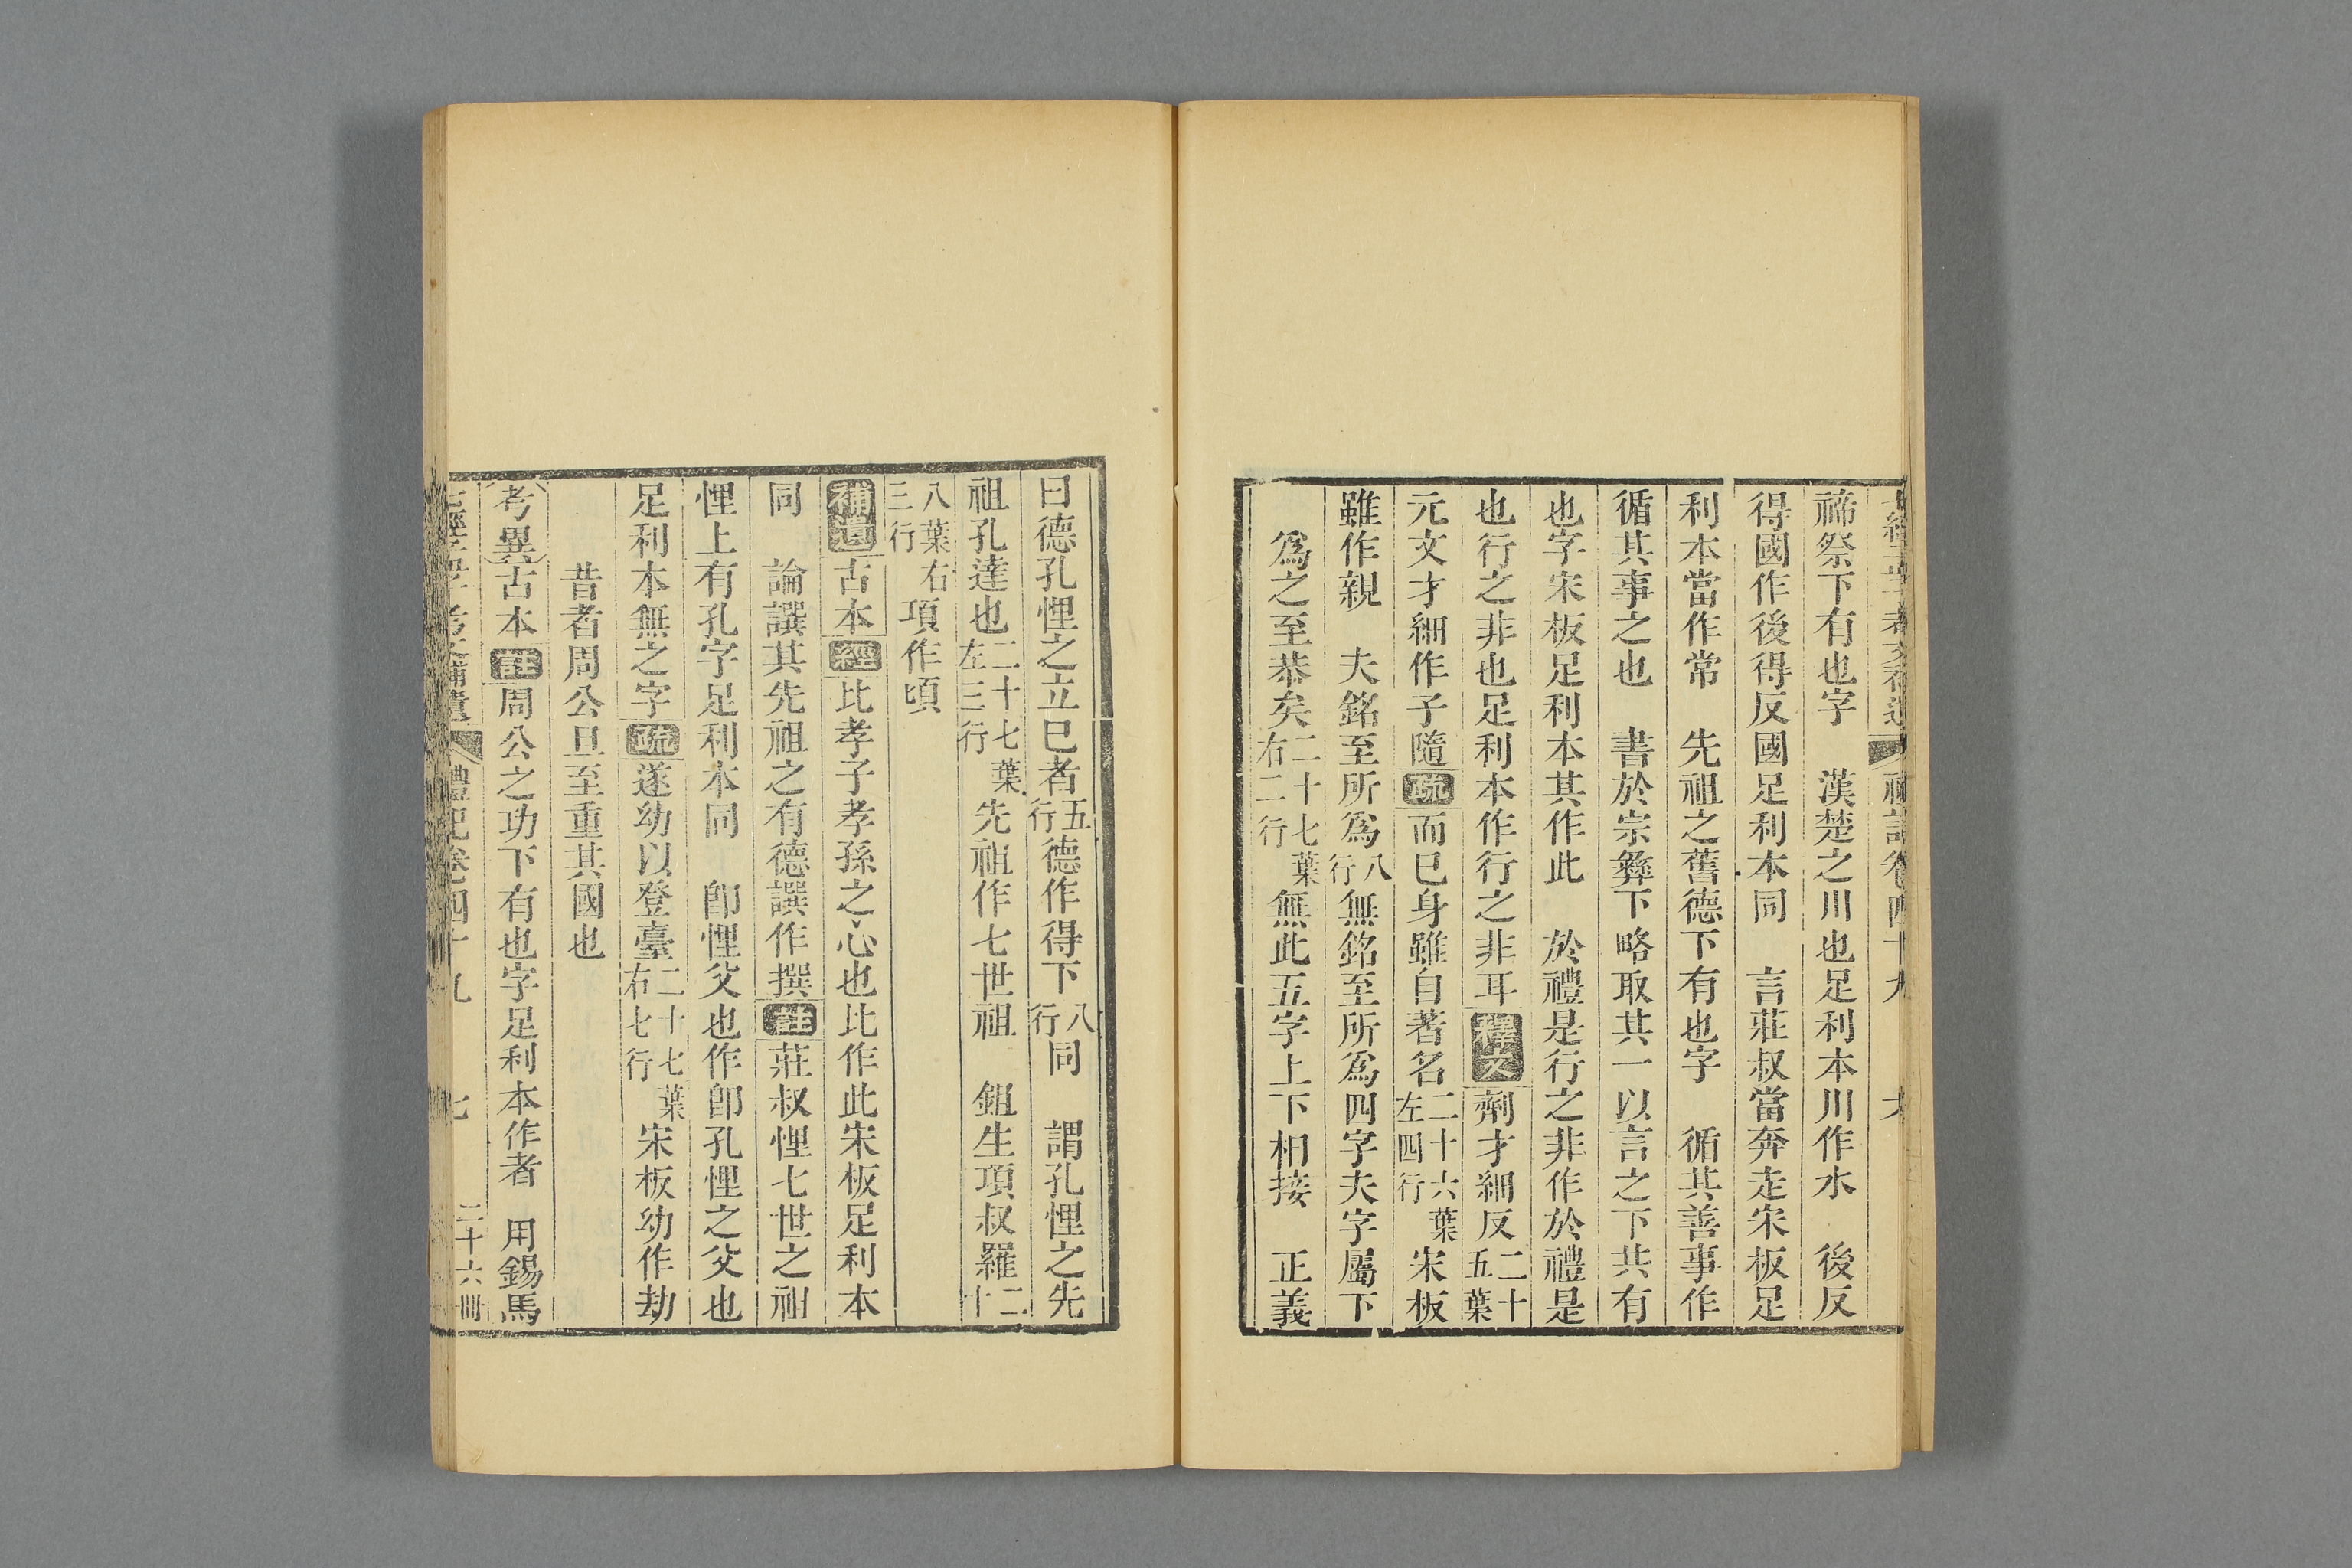 七經孟子考文補遺 禮記卷四十九 六
禘祭下有也字　漢楚之川也足利本川作水　後反
得國作後得反國足利本同　言莊叔當奔走宋板足
利本當作常　先祖之舊德下有也字　循其善事作
循其事之也　書於宗彝下略取其一以言之下共有
也字宋板足利本其作此　於禮是行之非作於禮是
也行之非也足利本作行之非耳釋文劑才細反二十五葉
元文才細作子隨疏而已身雖自著名二十六葉左四行宋板
雖作親　夫銘至所爲八行無銘至所爲四字夫字屬下
爲之至恭矣二十七葉右二行無此五字上下相接　正義
曰德孔悝之立巳者五行德作得下八行同　謂孔悝之先
祖孔達也二十七葉左三行先祖作七世祖　鉏生項叔羅二十
八葉右三行項作頃
補遺古本經比孝子孝孫之心也比作此宋板足利本
同　論譔其先祖之有德譔作撰註莊叔悝七世之祖
悝上有孔字足利本同　卽悝父也作卽孔悝之父也
足利本無之字疏遂幼以登臺二十七葉右七行宋板幼作劫
昔者周公旦至重其國也
考異古本註周公之功下有也字足利本作者　用錫馬
七經孟子考文補遺 禮記卷四十九 七 二十六冊